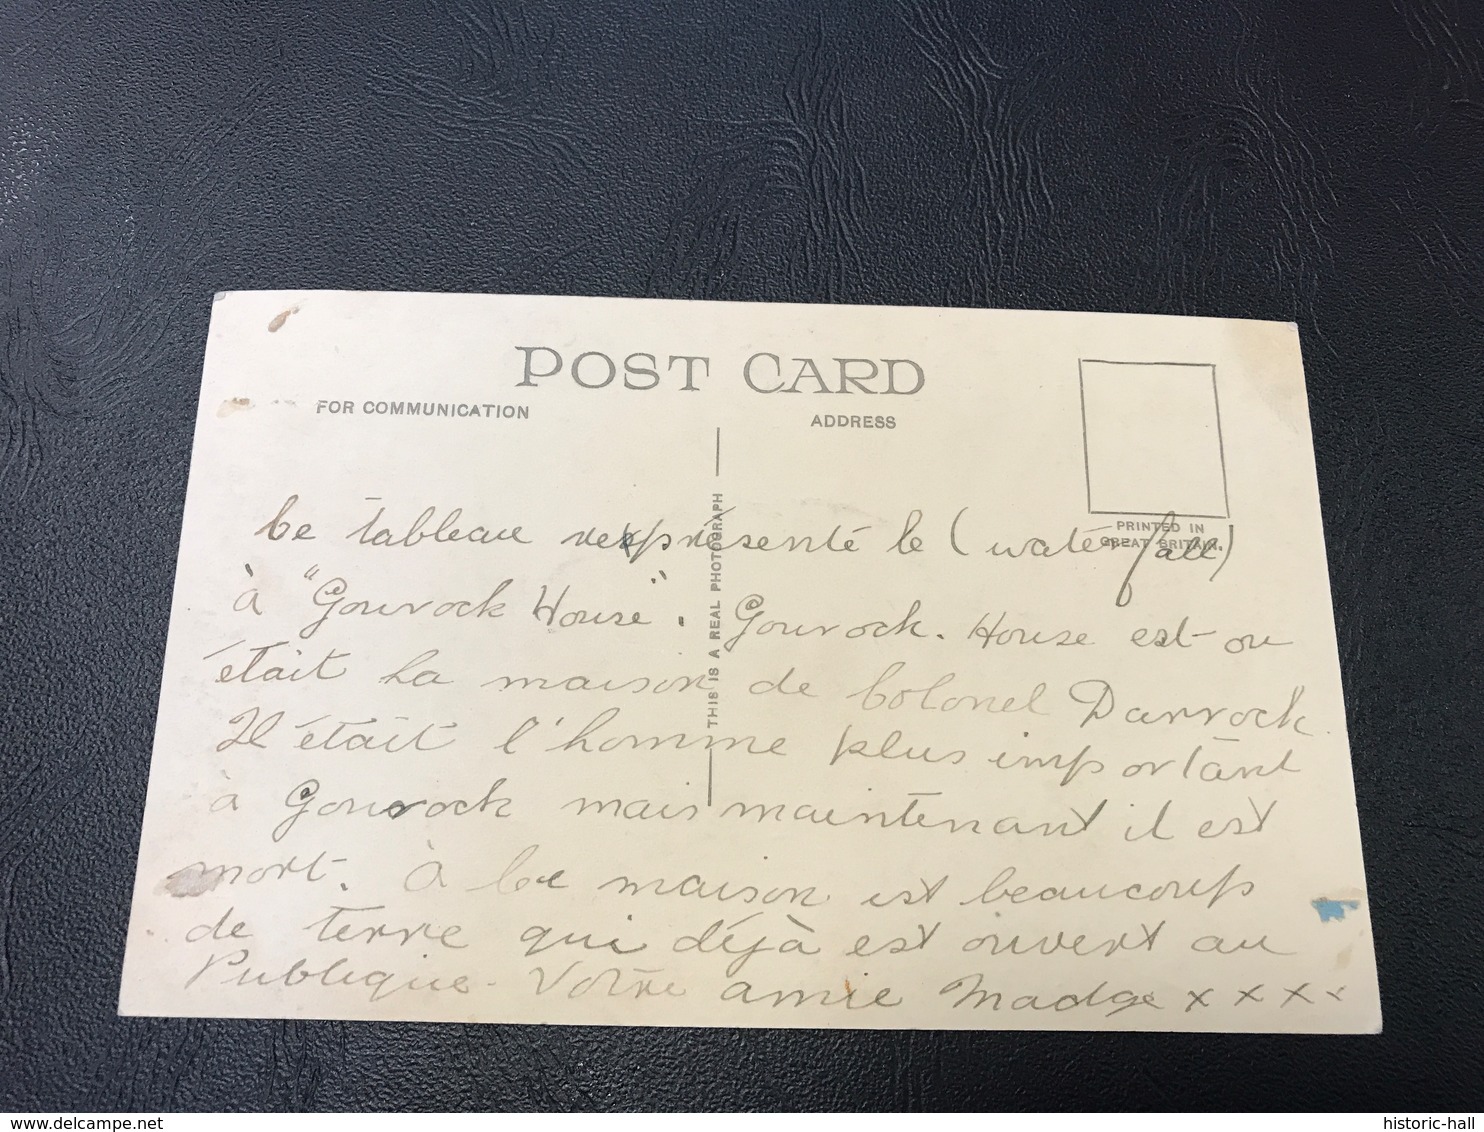 POST CARD
FOR COMMUNICATION
ADDRESS
PRINTED IN
GREAT BRITAIN.
THIS IS A REAL PHOTOGRAPH
Ce tableau représenté le (waterfall)
à "Gourock House". Gourock. House est ou
était la maison de Colonel Darrock.
Il était l'homme plus important
à Gourock mais maintenant il est
mort. à la maison est beaucoup
de terre qui déjà est ouvert au
Publique. Votre amie Madge x x x x
historic-hall